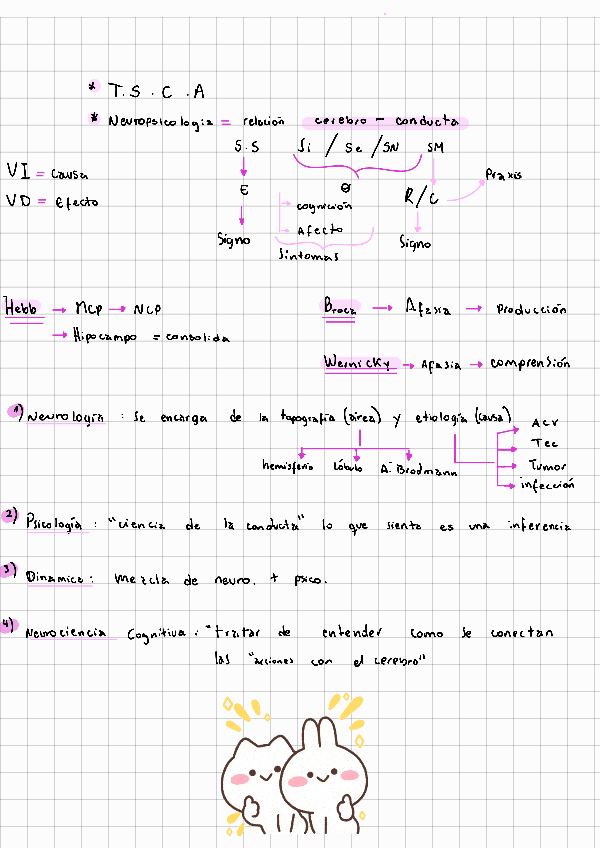 * T.S.C.A
* Neuropsicologia = relación cerebro - conducta
S.S Si / Se / SN SM
VI = causa
VD = Efecto
E
cognición
Afecto
Síntomas
R/C
Praxis
Signo
Signo
Hebb → MCP → NCP
→ Hipocampo = consolida
Broca → Afasia → Producción
Wernicky → Afasia → comprensión
1) Neurología : se encarga de la topografía (área) y etiología (causa)
hemisferio lóbulo A. Brodmann
ACV
Tec
Tumor
infección
2) Psicología : "ciencia de la conducta" lo que siento es una inferencia
3) Dinamica : mezcla de neuro. + psico.
4) Neurociencia Cognitiva : "tratar de entender como se conectan
las "acciones con el cerebro"